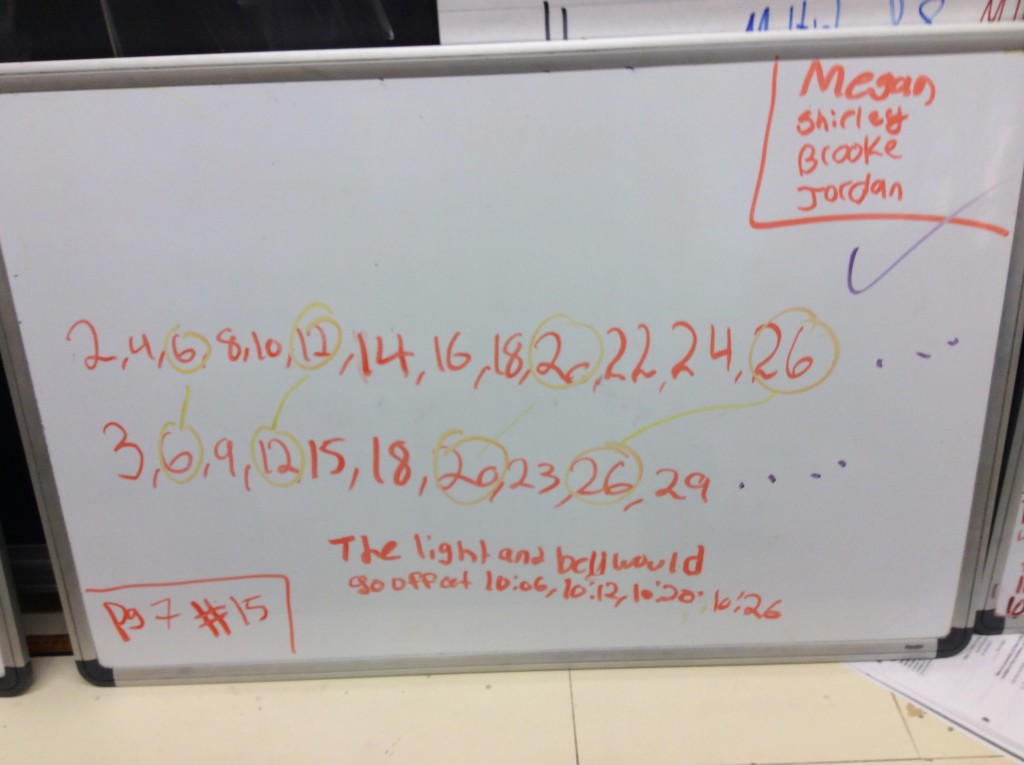 Megan
Shirley
Brooke
Jordan
2, 4, 6, 8, 10, 12, 14, 16, 18, 20, 22, 24, 26 . . . .
3, 6, 9, 12, 15, 18, 20, 23, 26, 29 . . . .
The light and bell would
go off at 10:06, 10:12, 10:20, 10:26
pg 7 #15